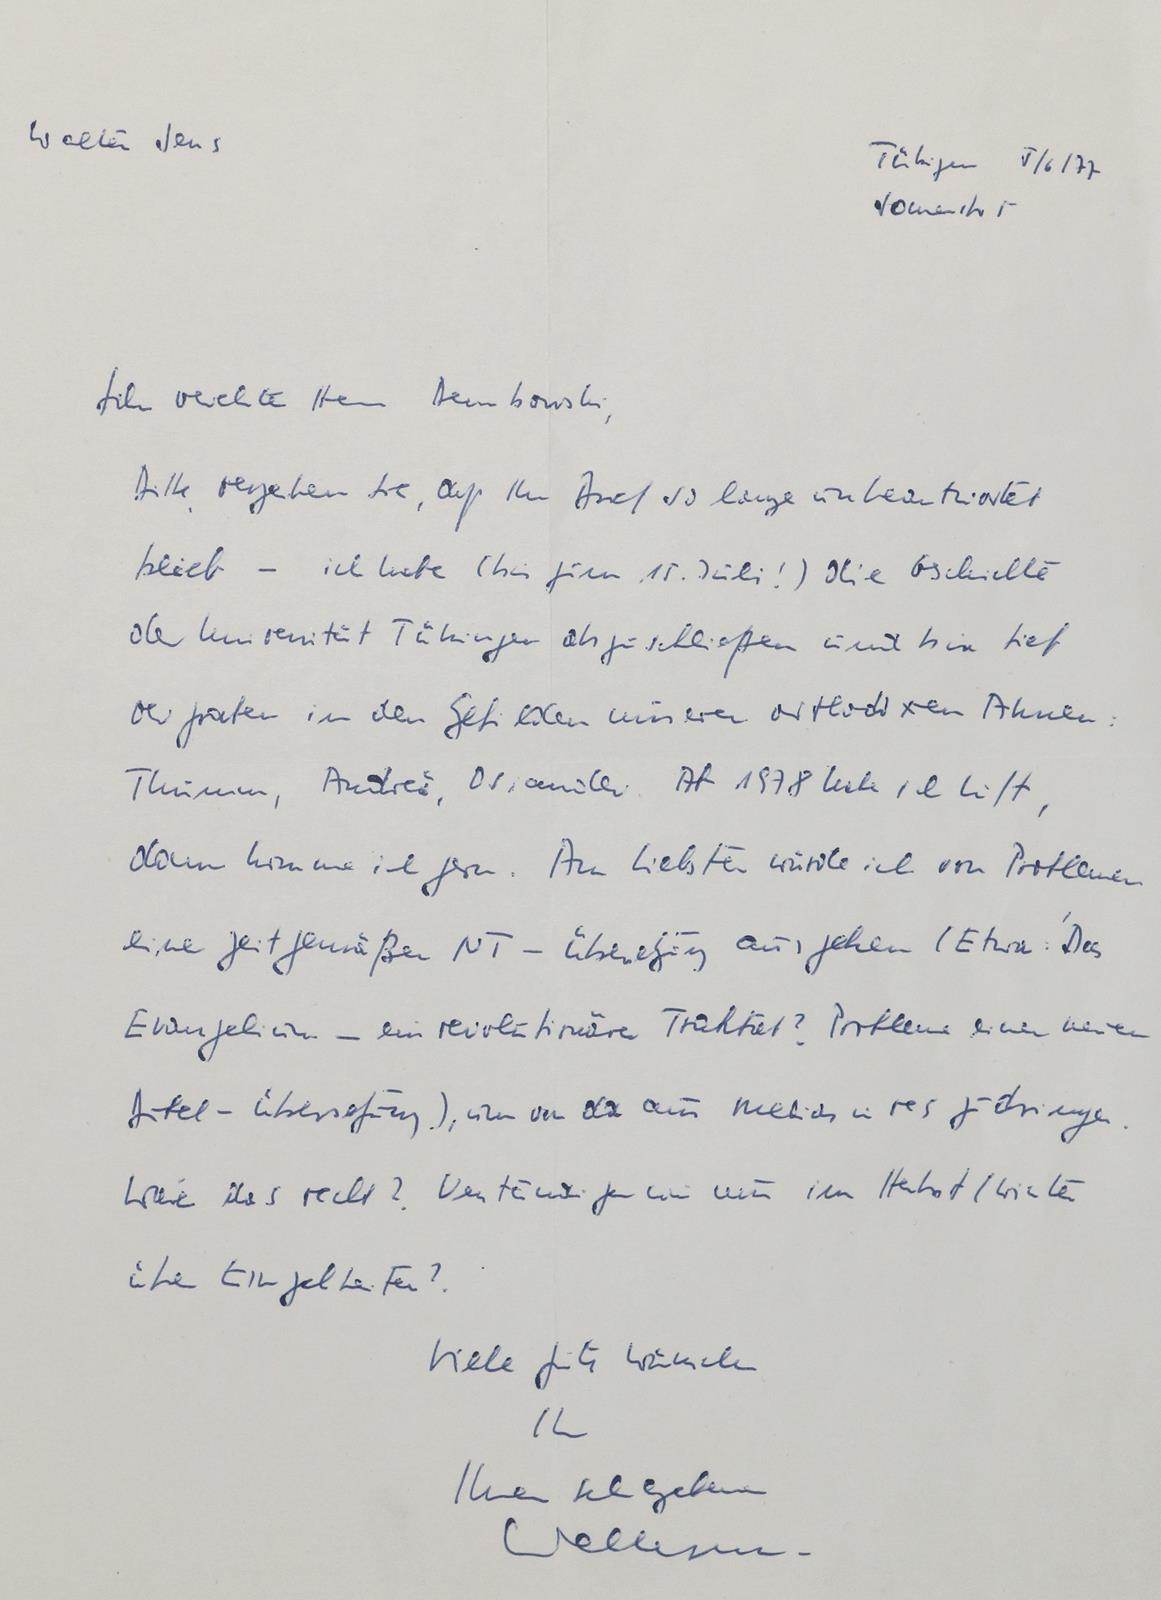 Walter Jens
Tübingen 5/6/77
Sonnenstr. 5
Sehr verehrter Herr Dembowski,
Bitte vergeben Sie, daß Ihr Brief so lange unbeantwortet
blieb – ich habe (bis zum 15. Juli!) die Geschichte
der Universität Tübingen abzuschließen und bin tief
vergraben in den Gefilden unserer orthodoxen Ahnen:
Thumm, Andreä, Osiander. Ab 1978 habe ich Luft,
dann komme ich gern. Am liebsten würde ich von Problemen
einer zeitgemäßen NT-Übersetzung ausgehen (Etwa: Das
Evangelium – ein revolutionärer Traktat? Probleme einer neuen
Bibel-Übersetzung), um von da aus medias in res zu dringen.
Wäre das recht? Verständigen wir uns im Herbst/Winter
über Einzelheiten?
Viele gute Wünsche
Ihr
Ihnen sehr ergebener
Walter Jens